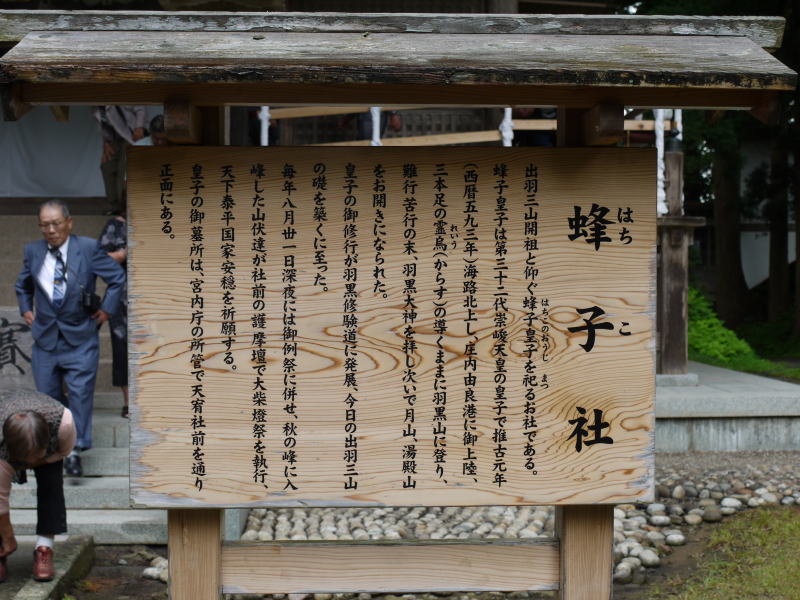 蜂子社
はちこ
出羽三山開祖と仰ぐ蜂子皇子を祀るお社である。
はちこのおうじ まつ
蜂子皇子は第三十二代崇峻天皇の皇子で推古元年
(西暦五九三年)海路北上し、庄内由良港に御上陸、
三本足の霊烏(からす)の導くままに羽黒山に登り、
れいう
難行苦行の末、羽黒大神を拝し次いで月山、湯殿山
をお開きになられた。
皇子の御修行が羽黒修験道に発展、今日の出羽三山
の礎を築くに至った。
毎年八月卅一日深夜には御例祭に併せ、秋の峰に入
峰した山伏達が社前の護摩壇で大柴燈祭を執行、
天下泰平国家安穏を祈願する。
皇子の御墓所は、宮内庁の所管で天宥社前を通り
正面にある。
賽